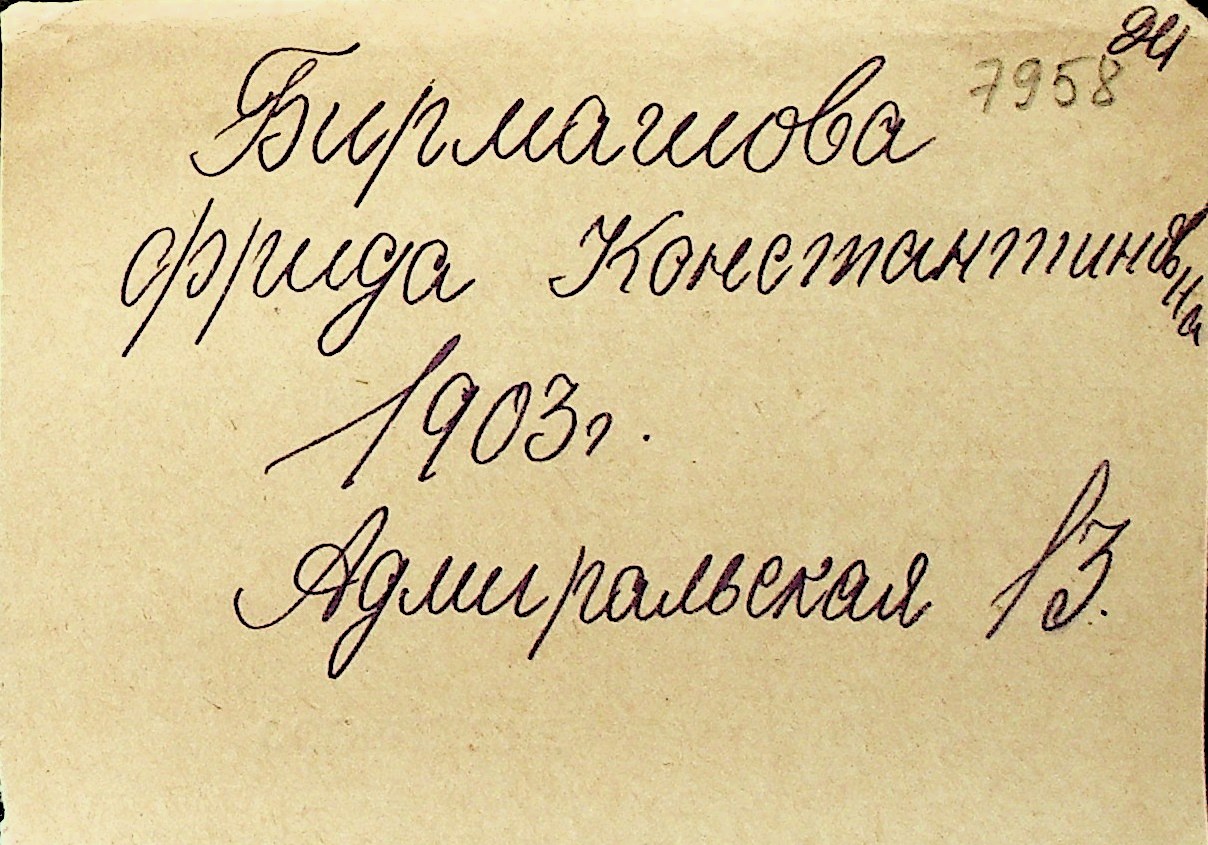 7958
Бирмашова
Фрида Константиновна
1903г.
Адмиральская 13.